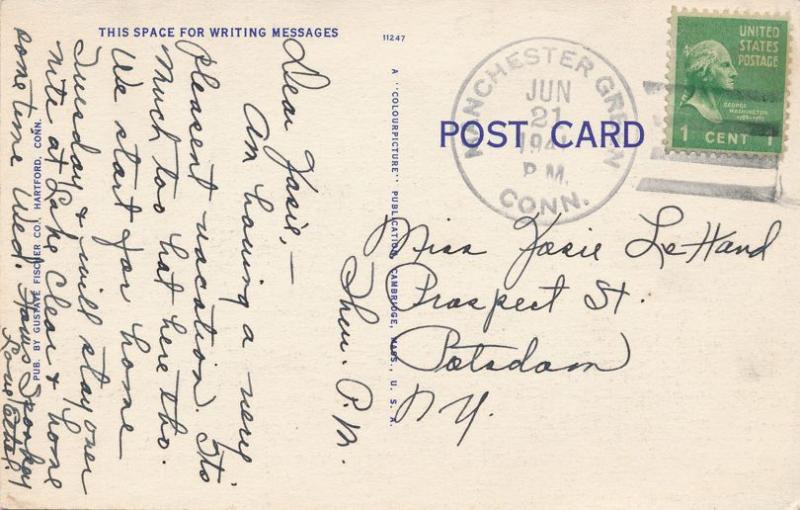 THIS SPACE FOR WRITING MESSAGES
11247
Dear Josie,—
Am having a very
pleasent vacation. Its
much too hot here tho.
We start for home
Tuesday & will stay over
nite at Lake Clear & home
sometime Wed.
Love Ethel
Thu. P.M.
PUB. BY GUSTAVE FISCHER CO., HARTFORD, CONN.
A "COLOURPICTURE" PUBLICATION, CAMBRIDGE, MASS., U. S. A.
POST CARD
MANCHESTER GREEN
JUN
21
P.M.
CONN.
UNITED
STATES
POSTAGE
GEORGE
WASHINGTON
1 CENT 1
Miss Josie LeHand
Prospect St.
Potsdam
N.Y.